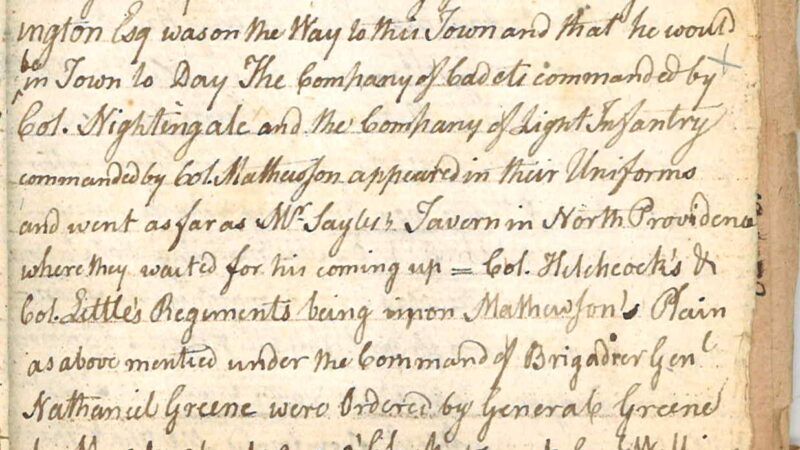 ington Esq was on the Way to this Town and that he would
be
in Town to Day The Company of Cadets commanded by
Col. Nightengale and the Company of Light Infantry
commanded by Col. Mathewson appeared in their Uniforms
and went as far as Mr Sayles's Tavern in North Providence
where they waited for his coming up = Col. Hitchcock's &
Col. Little's Regiments being upon Mathewson's Plain
as above mentied under the Command of Brigadier Genl
Nathaniel Greene were Ordered by General Greene